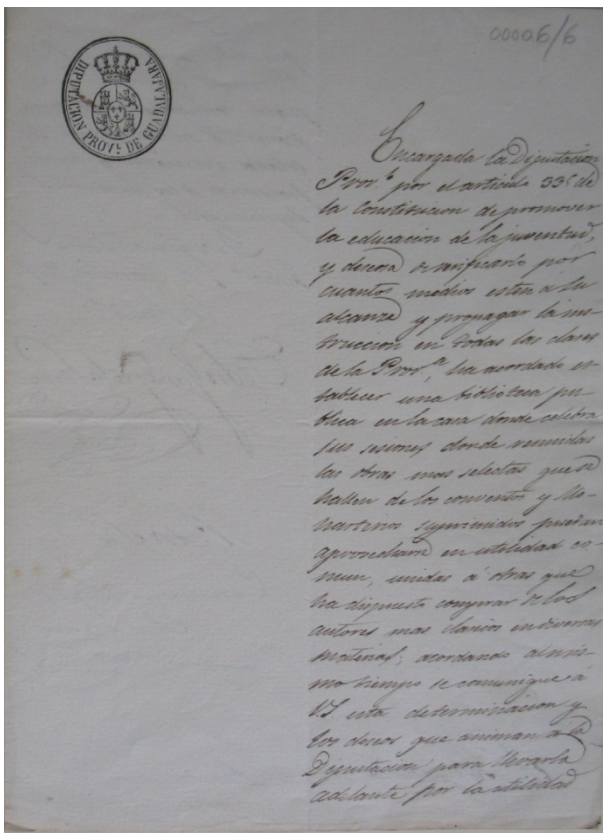 00006/6
DIPUTACION PROV.L DE GUADALAJARA
Encargada la Diputacion
Prov.l por el articulo 335 de
la Constitucion de promover
la educacion de la juventud,
y deseosa de verificarlo por
cuantos medios esten a su
alcanze y propagar la ins-
truccion en todas las clases
de la Prov.a, ha acordado es-
tablecer una biblioteca pu-
blica en la casa donde celebra
sus sesiones donde reunidas
las obras mas selectas que se
hallen de los conventos y Mo-
nasterios suprimidos puedan
aprovecharse en utilidad co-
mun, unidas á otras que
ha dispuesto comprar de los
autores mas clasicos en diversas
materias; acordando al mis-
mo tiempo se comunique á
VS esta determinacion y
los deseos que animan a la
Diputacion para llevarla
adelante por la utilidad